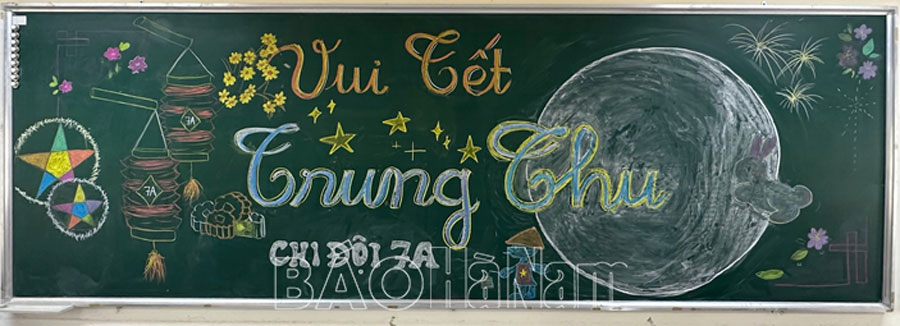 Vui Tết
Trung Thu
7A
7A
CHI ĐỘI 7A
BÁO Hà Nam